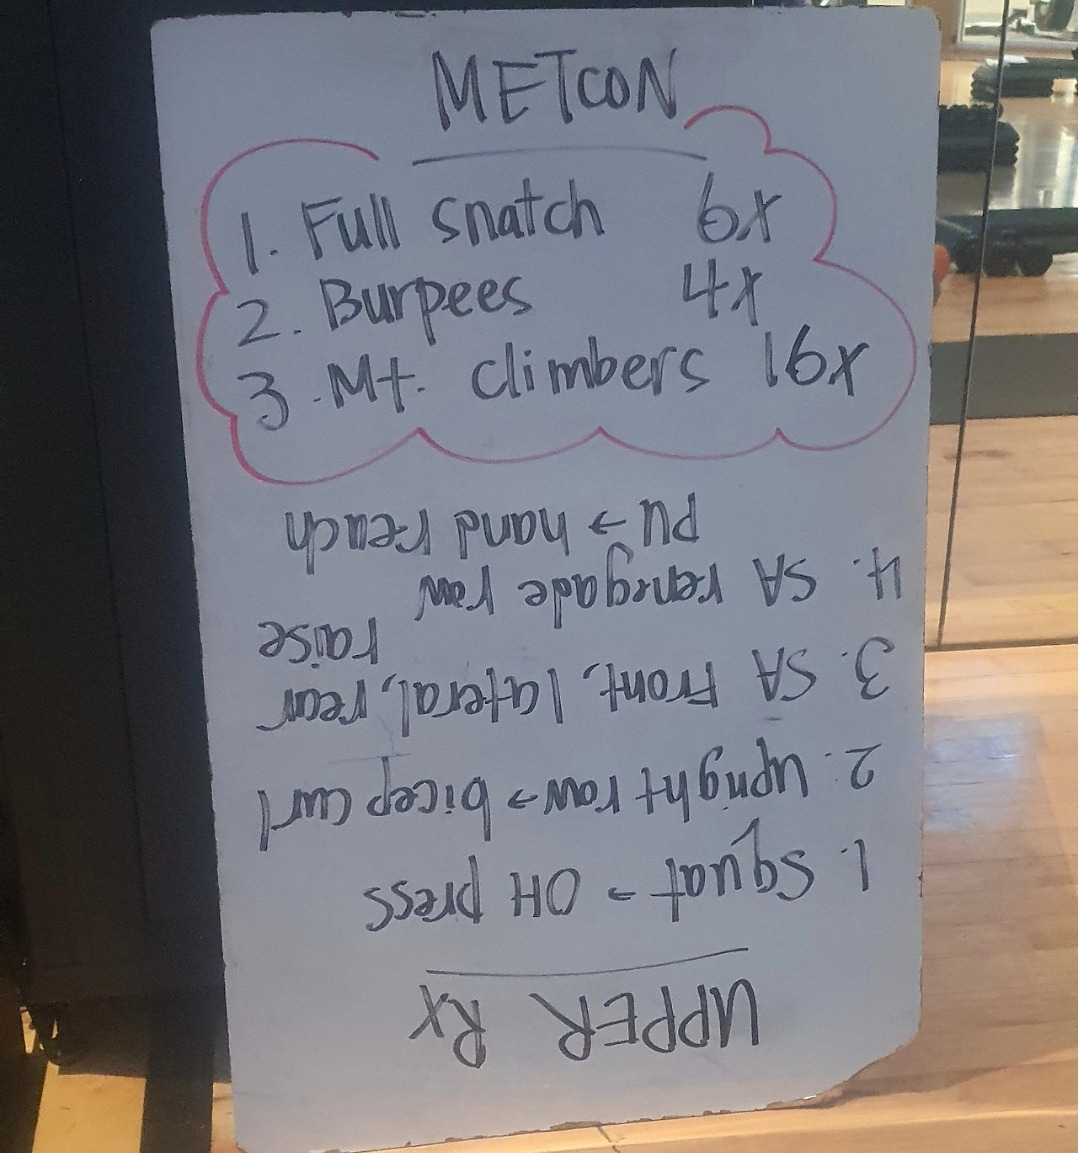 METCON
1. Full snatch 6x
2. Burpees 4x
3. Mt. climbers 16x
UPPER RX
1. Squat → OH press
2. Upright row → bicep curl
3. SA Front, lateral, rear
raise
4. SA renegade row
PU → hand reach